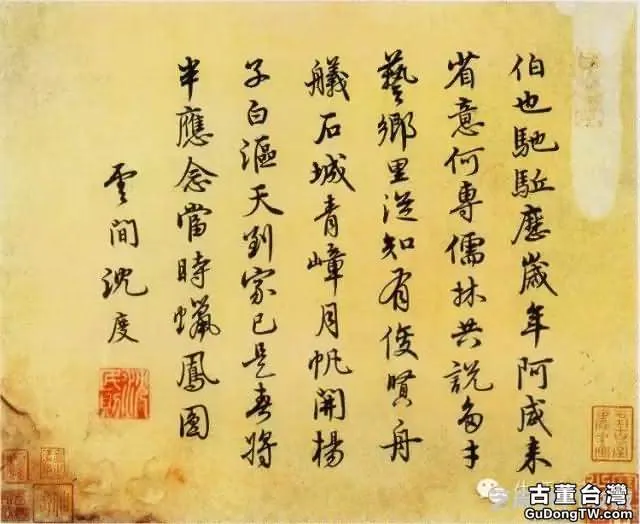 伯也馳駈歷歲年阿咸来
省意何專儒林共說多才
藝鄉里從知有俊賢舟
艤石城青嶂月帆開楊
子白漚天到家已是春將
半應念當時蠟鳳圓
雲間沈度
古董台灣
GuDongTW.com